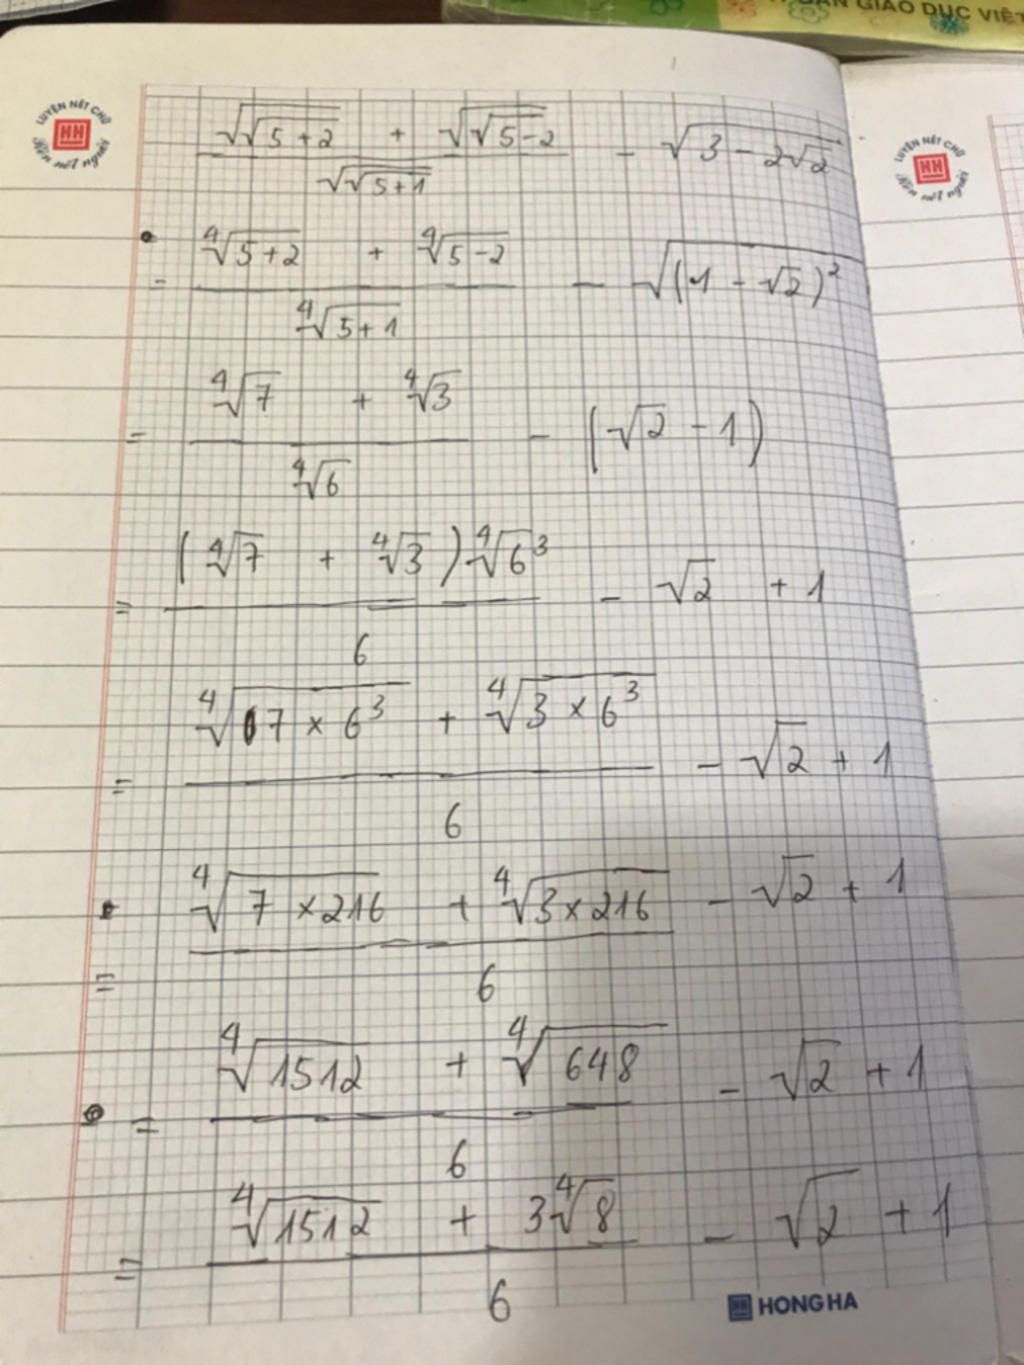 BẢN GIÁO DỤC VIỆT
LUYỆN NÉT CHỮ
HH
Rèn nết người
LUYỆN NÉT CHỮ
HH
Rèn nết người
(√√(5+2) + √√(5-2)) / √√(5+1) - √(3 - 2√2)
= (⁴√(5+2) + ⁴√(5-2)) / ⁴√(5+1) - √((1 - √2)²)
= (⁴√7 + ⁴√3) / ⁴√6 - (√2 - 1)
= ((⁴√7 + ⁴√3) ⁴√6³) / 6 - √2 + 1
= (⁴√(7 × 6³) + ⁴√(3 × 6³)) / 6 - √2 + 1
= (⁴√(7 × 216) + ⁴√(3 × 216)) / 6 - √2 + 1
= (⁴√1512 + ⁴√648) / 6 - √2 + 1
= (⁴√1512 + 3⁴√8) / 6 - √2 + 1
HH HONG HA